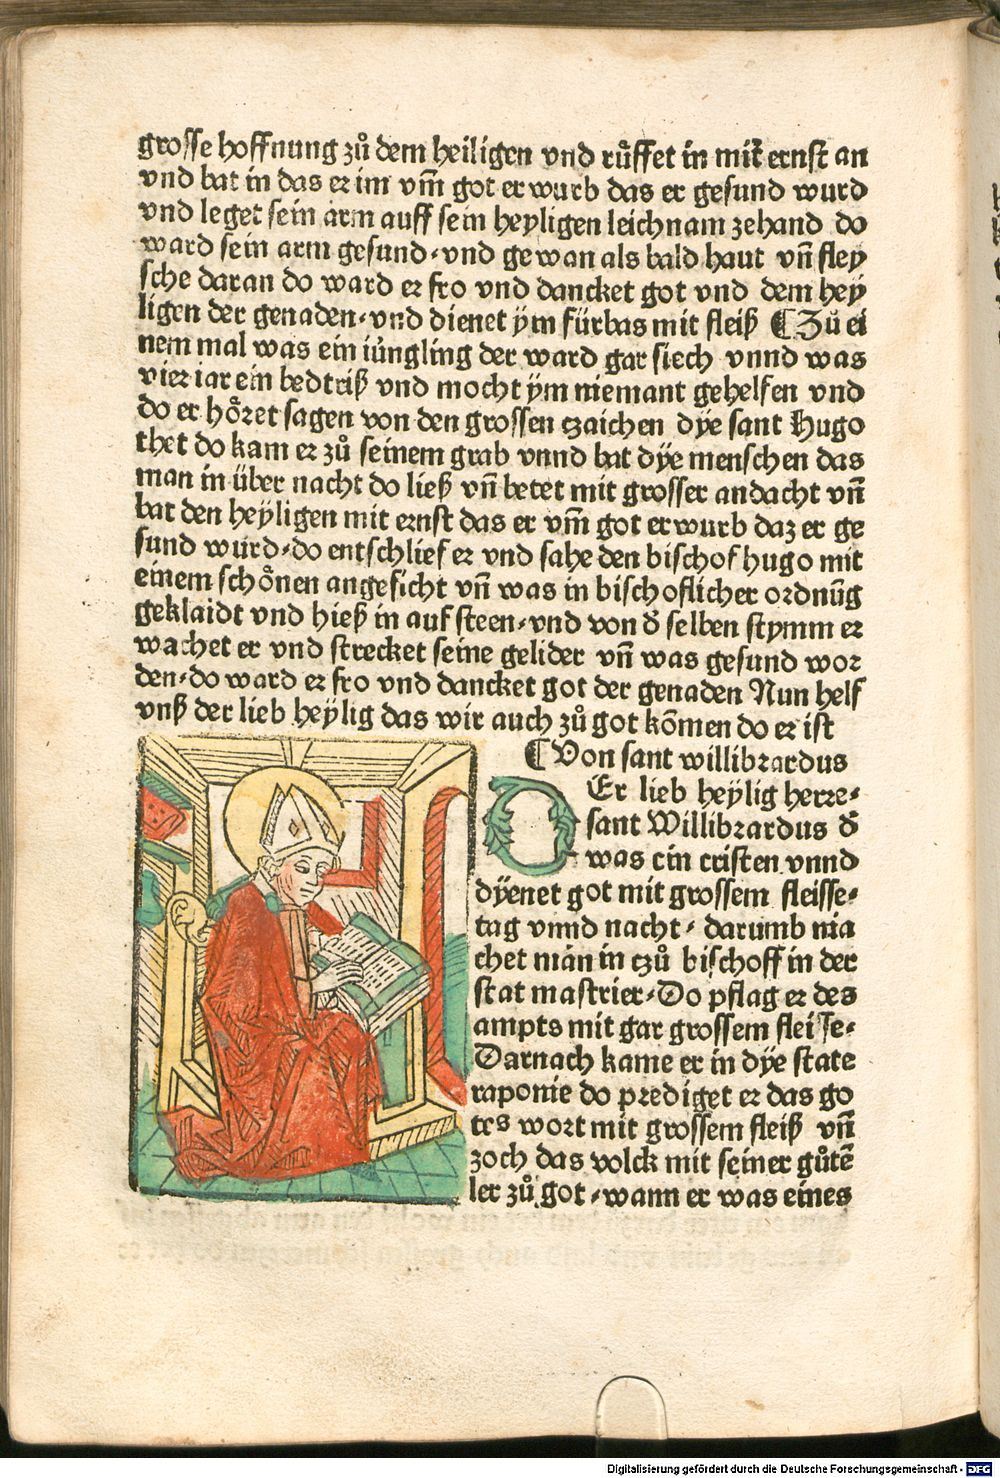 grosse hoffnung zů dem heiligen vnd růffet in mit ernst an
vnd bat in das er im vm̄ got erwurb das er gesund wurd
vnd leget sein arm auff sein heyligen leichnam zehand do
ward sein arm gesund·vnd gewan als bald haut vñ fley
sche daran do ward er fro vnd dancket got vnd dem hey
ligen der genaden·vnd dienet ÿm fürbas mit fleiß ¶ Zů ei
nem mal was ein iüngling der ward gar siech vnnd was
vier iar ein bedtriß vnd mocht ÿm niemant gehelfen vnd
do er hőret sagen von den grossen czaichen dÿe sant Hugo
thet do kam er zů seinem grab vnnd bat dÿe menschen das
man in über nacht do ließ vñ betet mit grosser andacht vñ
bat den heÿligen mit ernst das er vm̄ got erwurb daz er ge
sund wurd·do entschlief er vnd sahe den bischof hugo mit
einem schőnen angesicht vñ was in bischoflicher ordnūg
geklaidt vnd hieß in auf steen·vnd von đ selben stymm er
wachet er vnd strecket seine gelider vñ was gesund wor
den·do ward er fro vnd dancket got der genaden Nun helf
vnß der lieb heÿlig das wir auch zů got kőmen do er ist
¶ Von sant willibrardus
DEr lieb heÿlig herre·
sant Willibrardus đ
was ein cristen vnnd
dÿenet got mit grossem fleisse·
tag vnnd nacht· darumb ma
chet man in czů bischoff in der
stat mastrier·Do pflag er des
ampts mit gar grossem fleisse·
Darnach kame er in dÿe state
raponie do prediget er das go
tes wort mit grossem fleiß vñ
zoch das volck mit seiner gůtē
ler zů got·wann er was eines
Digitalisierung gefördert durch die Deutsche Forschungsgemeinschaft - DFG